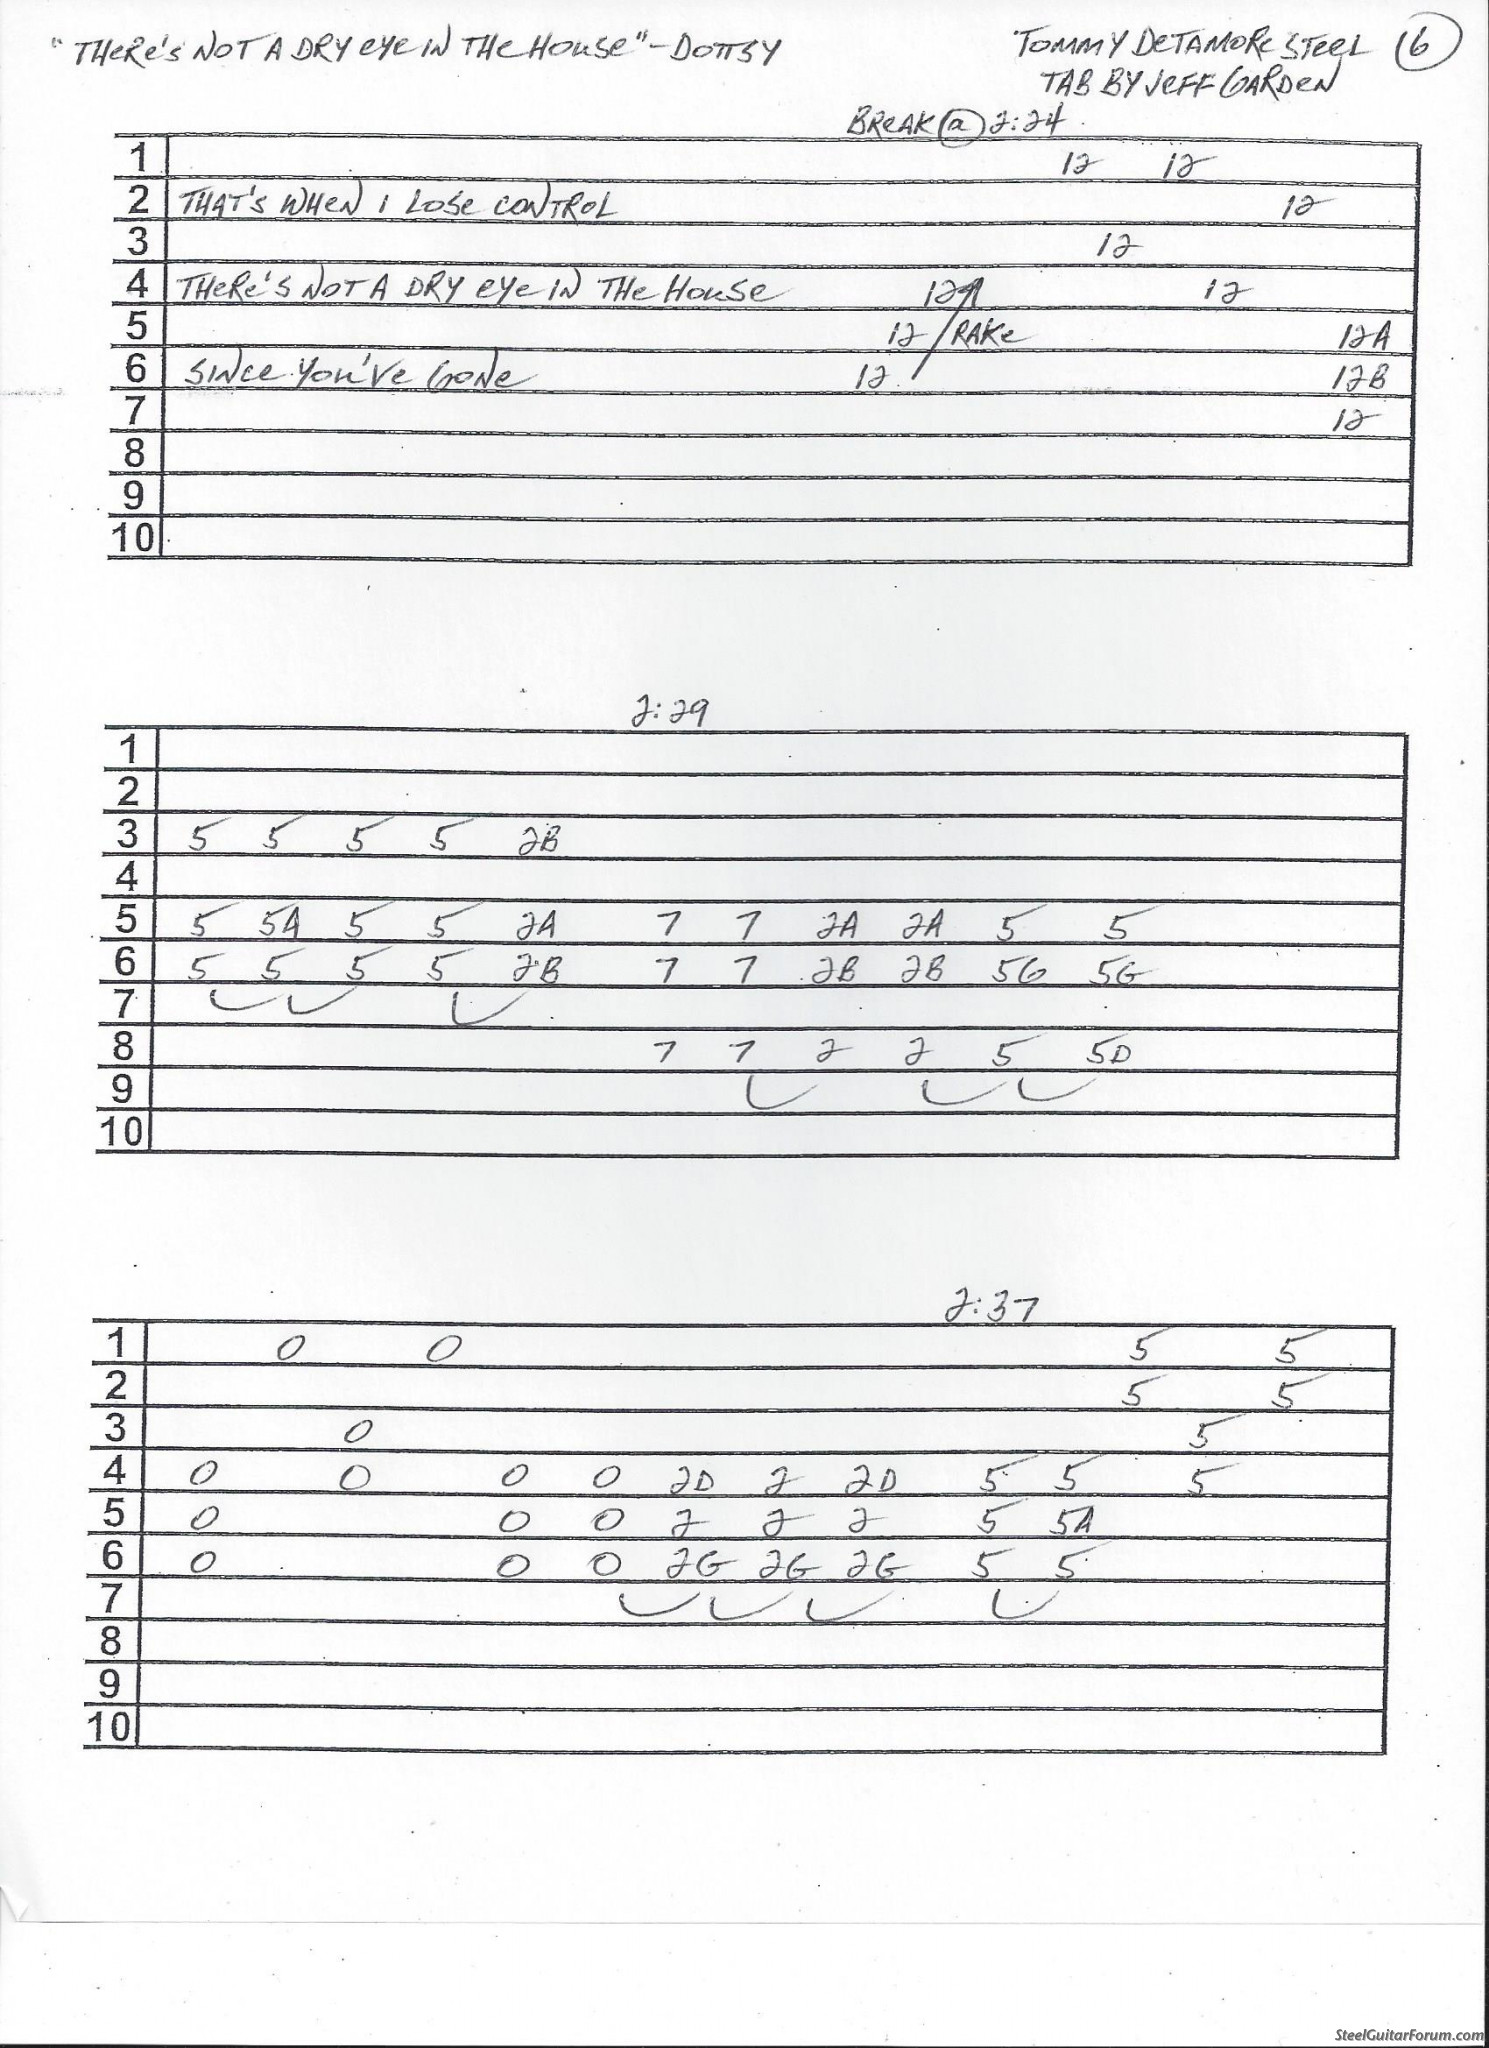 "THERE'S NOT A DRY EYE IN THE HOUSE" - DOTTSY
TOMMY DETAMORE STEEL 6
TAB BY JEFF GARDEN
BREAK @ 2:24
1 12 12
2 THAT'S WHEN I LOSE CONTROL 12
3 12
4 THERE'S NOT A DRY EYE IN THE HOUSE 12 12
5 12 RAKE 12A
6 SINCE YOU'VE GONE 12 12B
7 12
8
9
10
2:29
1
2
3 5 5 5 5 2B
4
5 5 5A 5 5 2A 7 7 2A 2A 5 5
6 5 5 5 5 2B 7 7 2B 2B 5G 5G
7
8 7 7 2 2 5 5D
9
10
2:37
1 0 0 5 5
2 5 5
3 0 5
4 0 0 0 0 2D 2 2D 5 5 5
5 0 0 0 2 2 2 5 5A
6 0 0 0 2G 2G 2G 5 5
7
8
9
10
SteelGuitarForum.com